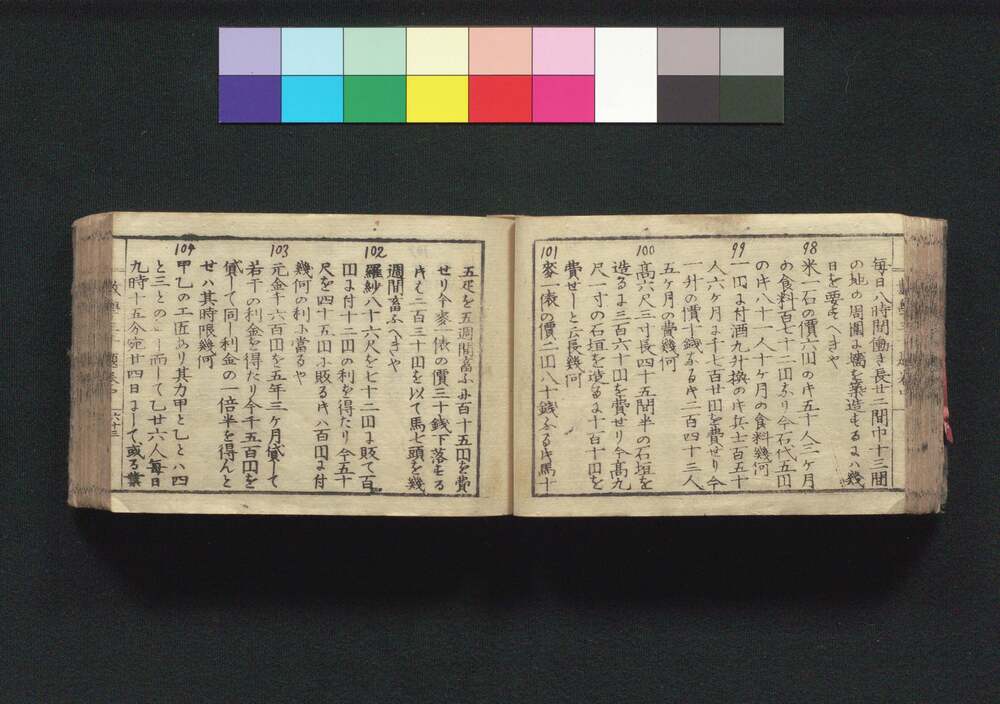 毎日八時間働き長廿二間巾十三間
の地の周圍に墻を築造するにハ幾
日を要すへきや
98
米一石の價六円のキ五十人三ヶ月
の食料百七十二円なり今石代五円
のキ八十一人十ヶ月の食料幾何
99
一円に付酒九升換のキ兵士百五十
人六ヶ月に千七百廿円を費せり今
一升の價十錢なるキ二百四十三人
五ヶ月の費幾何
100
高六尺三寸長四十五間半の石垣を
造るに三百六十円を費せり今高九
尺一寸の石垣を造るに千百十円を
費せしと云長幾何
101
麥一俵の價二円八十錢なるキ馬十
五疋を五週間畜ふに百十五円を費
せり今麥一俵の價三十錢下落する
キハ二百三十円を以て馬七頭を幾
週間畜ふへきや
102
羅紗八十六尺を七十二円に販て百
円に付十二円の利を得たり今五十
尺を四十五円に販るキハ百円に付
幾何の利に當るや
103
元金千六百円を五年三ヶ月貸して
若干の利金を得たり今千五百円を
貸して同し利金の一倍半を得んと
せハ其時限幾何
104
甲乙の工匠あり其力甲と乙とハ四
と三との而して乙廿六人毎日
九時十五分宛廿四日にして或る業